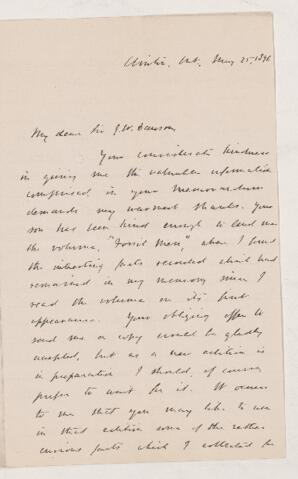 Clinton, Ont., May 25, 1896
My dear Sir J. W. Dawson,
Your considerate kindness
in giving me the valuable information
comprised in your memorandum
demands my warmest thanks. Your
son has been kind enough to lend me
the volume, "Fossil Men", where I found
the interesting facts recorded which had
remained in my memory since I
read the volume on its first
appearance. Your obliging offer to
send me a copy would be gladly
accepted, but as a new edition is
in preparation I should, of course,
prefer to wait for it. It occurs
to me that you may like to use
in that edition some of the rather
curious facts which I collected for